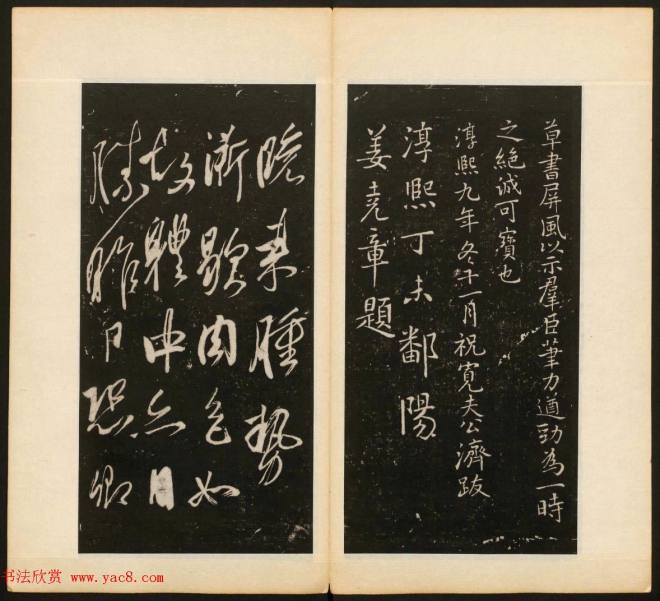 草書屏風以示羣臣筆力遒勁為一時
之絕誠可寶也
淳熙九年冬十一月祝寬夫公濟跋
淳熙丁未鄱陽
姜堯章題
晚來腫勢
漸歇肉色如
故體中亦
勝昨日恐卿
书法欣赏 www.yac8.com